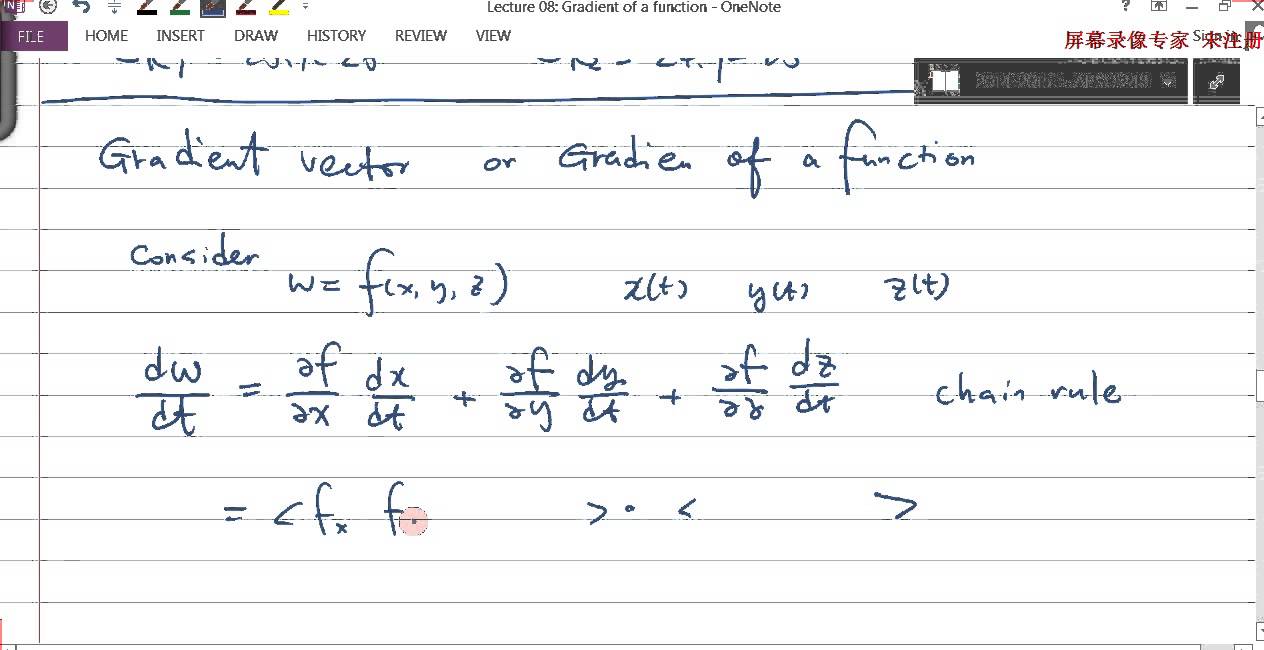 Lecture 08: Gradient of a function - OneNote
FILE HOME INSERT DRAW HISTORY REVIEW VIEW
屏幕录像专家 未注册
Gradient vector or Gradien of a function
Consider
w = f(x, y, z) x(t) y(t) z(t)
dw/dt = ∂f/∂x dx/dt + ∂f/∂y dy/dt + ∂f/∂z dz/dt chain rule
= < fx f > · < >